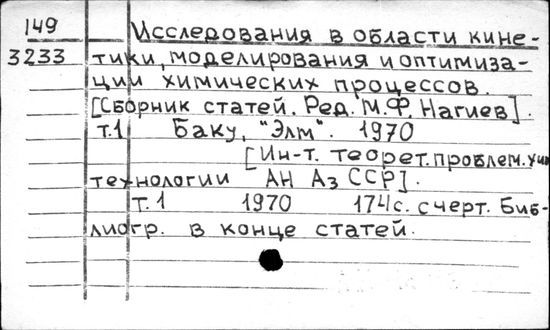 149 Исследования в области кине-
3233 тики, моделирования и оптимиза-
ции химических процессов.
[Сборник статей. Ред. М.Ф. Нагиев].
т.1 Баку, "Элм". 1970
[Ин-т. теорет. проблем. хим
технологии АН Аз ССР].
т.1 1970 174с. с черт. Биб-
лиогр. в конце статей.